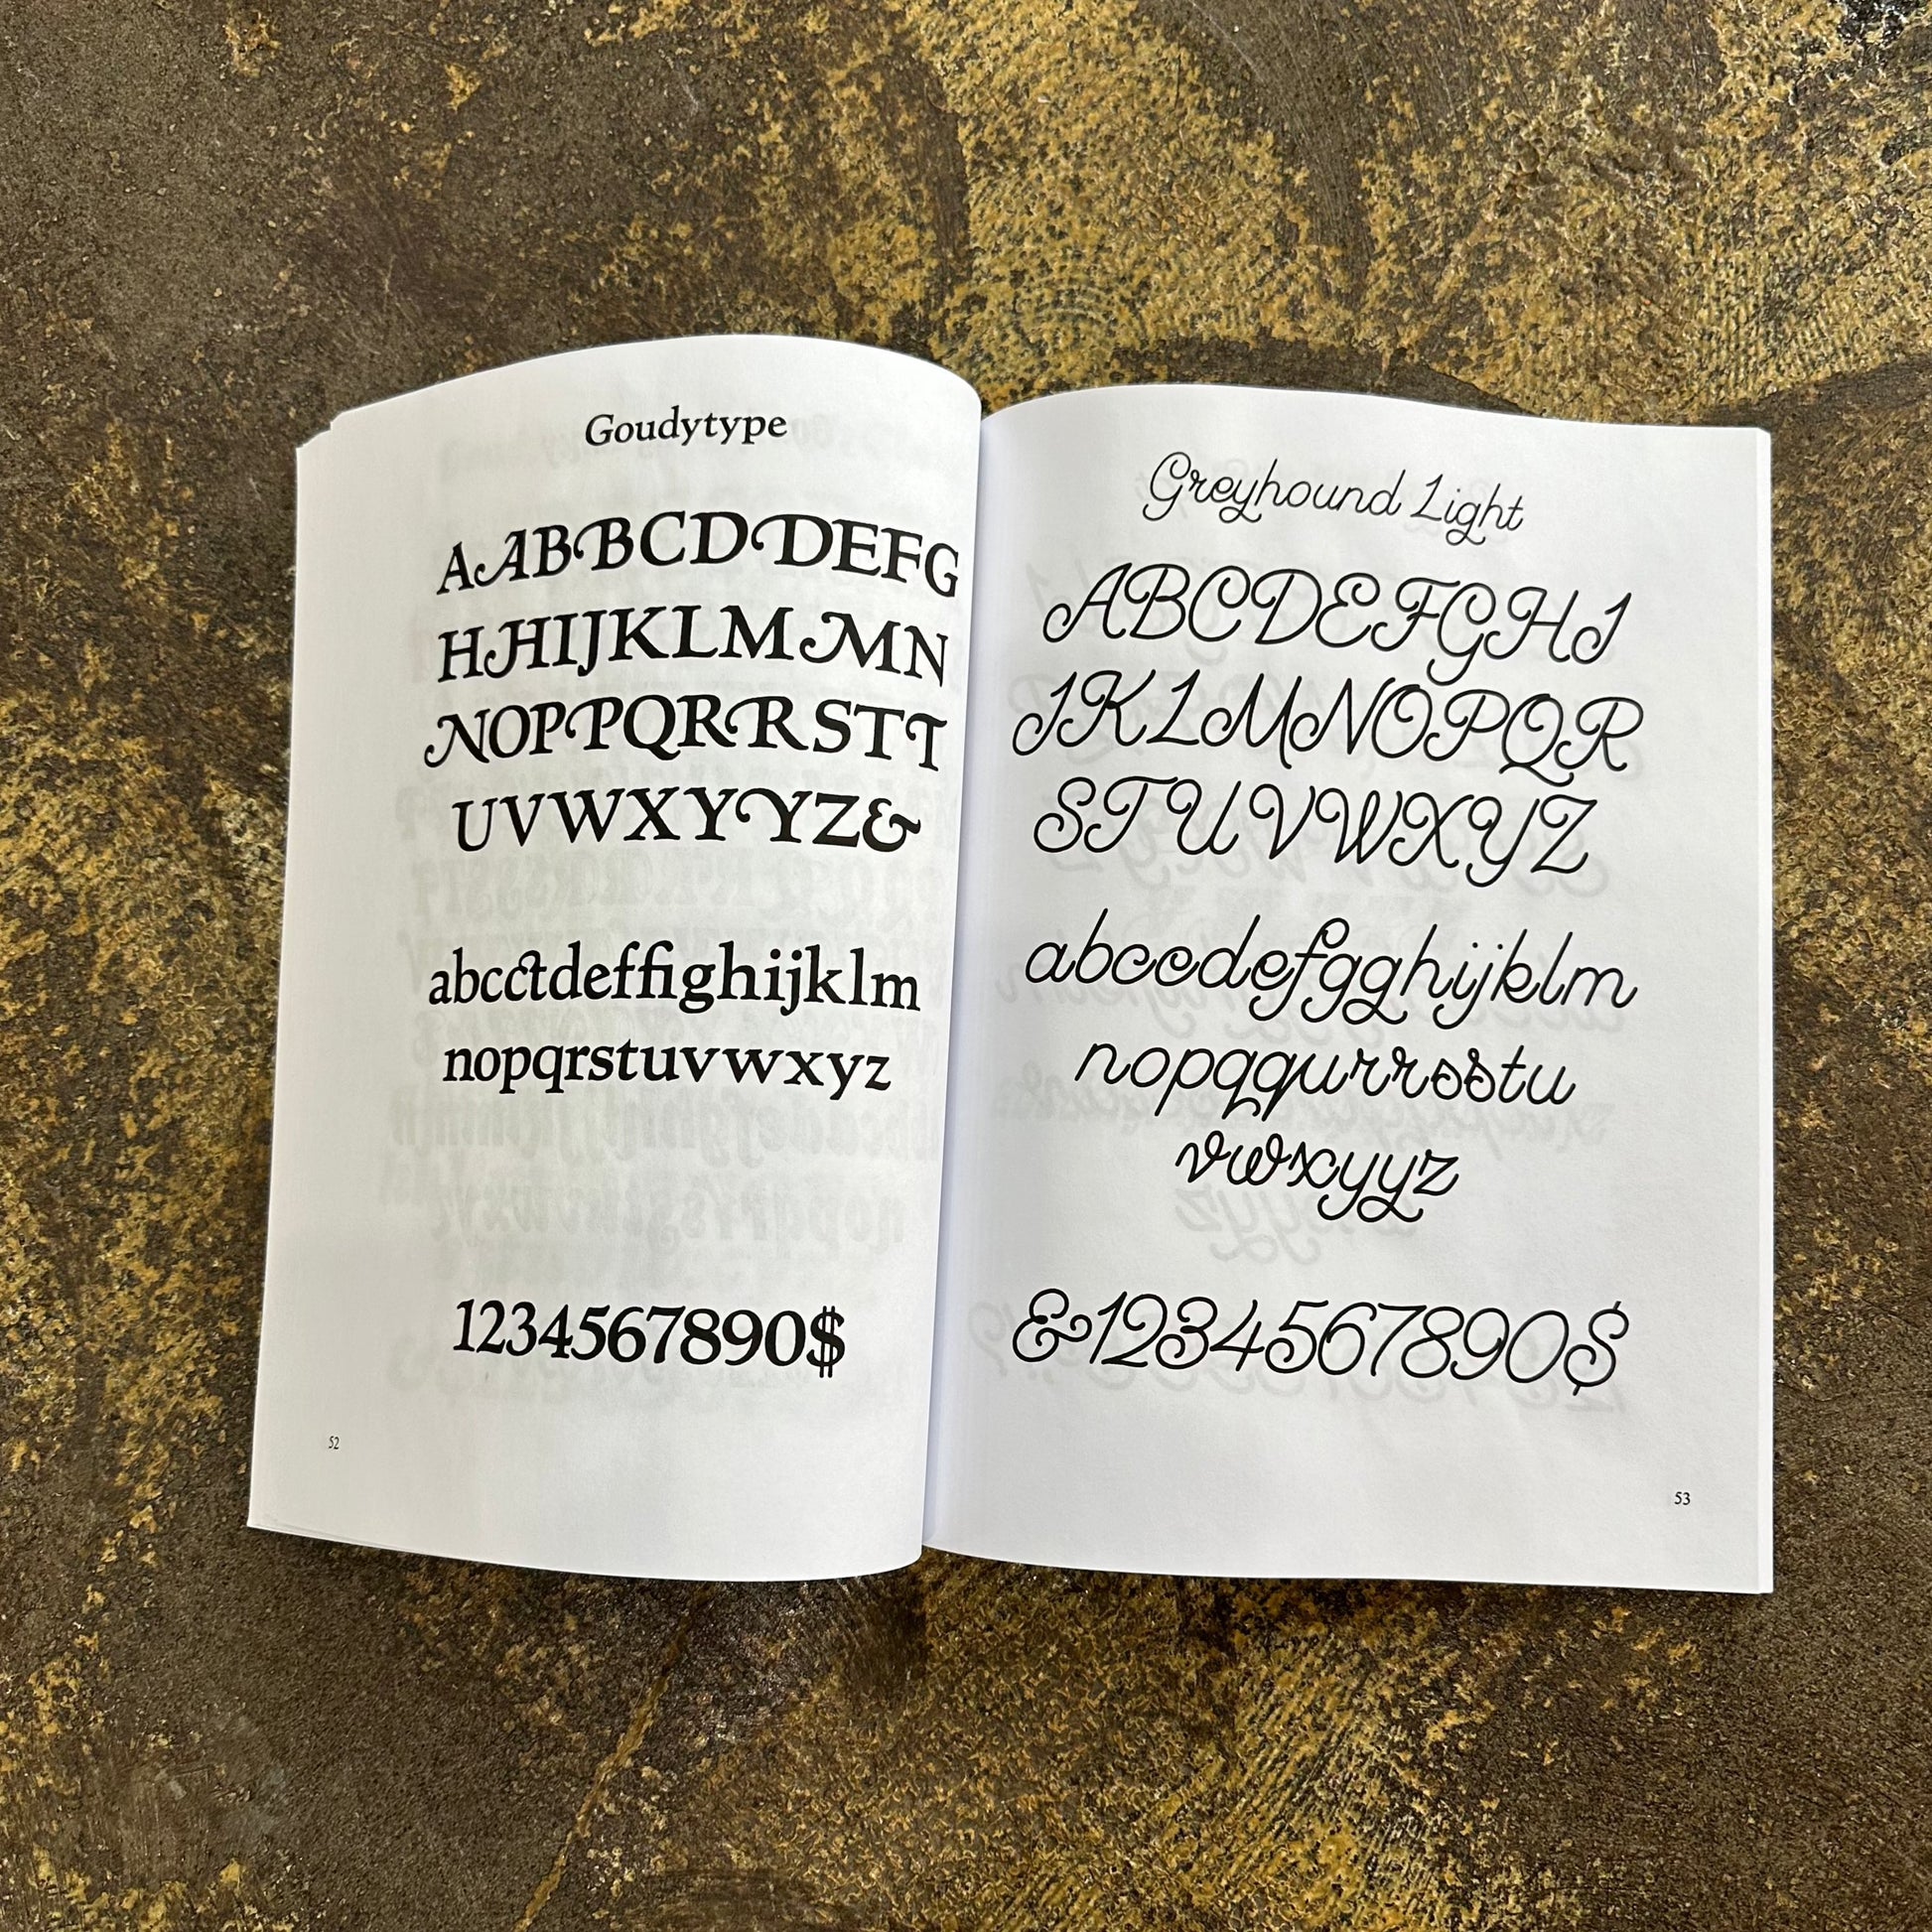 Goudytype
AABBCDDEFG
HHIJKLMMN
NOPPQRRSTT
UVWXYYZ&
abcctdeffighijklm
nopqrstuvwxyz
1234567890$
52
Greyhound Light
ABCDEFGHI
JKLMNOPQR
STUVWXYZ
abccdefgghijklm
nopqqurrsstu
vwxyyz
&1234567890$
53